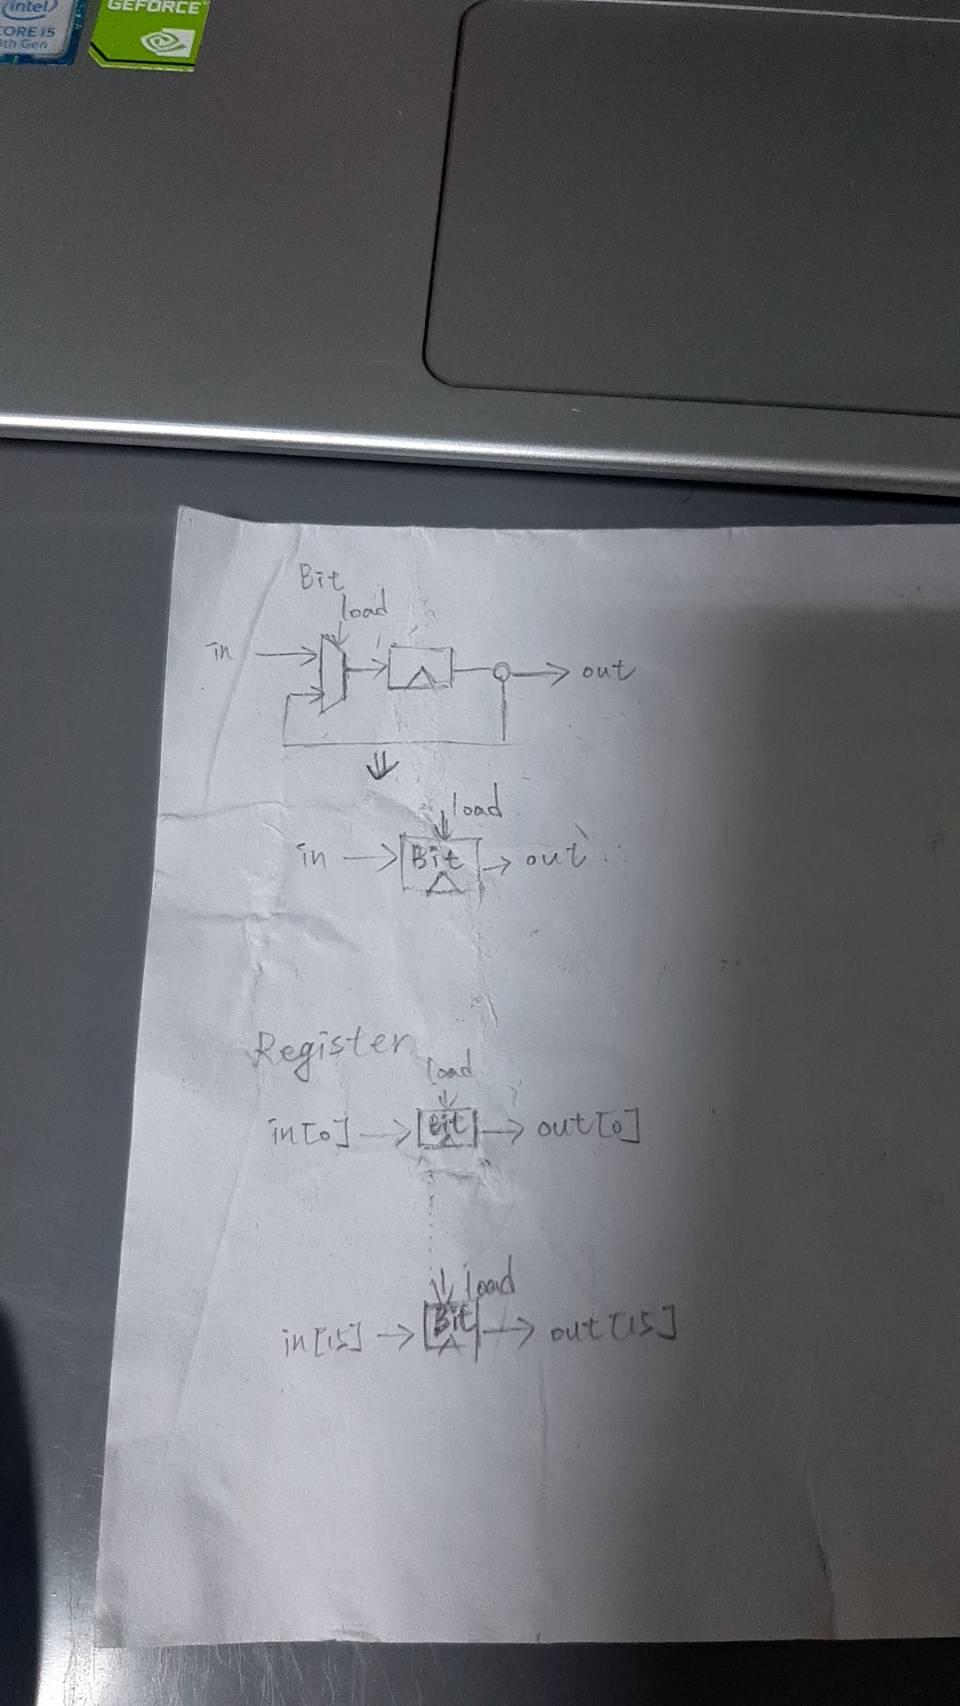 intel
CORE i5
8th Gen
GEFORCE
Bit
load
in
out
load
in
Bit
out
Register
load
in[0]
Bit
out[0]
load
in[15]
Bit
out[15]